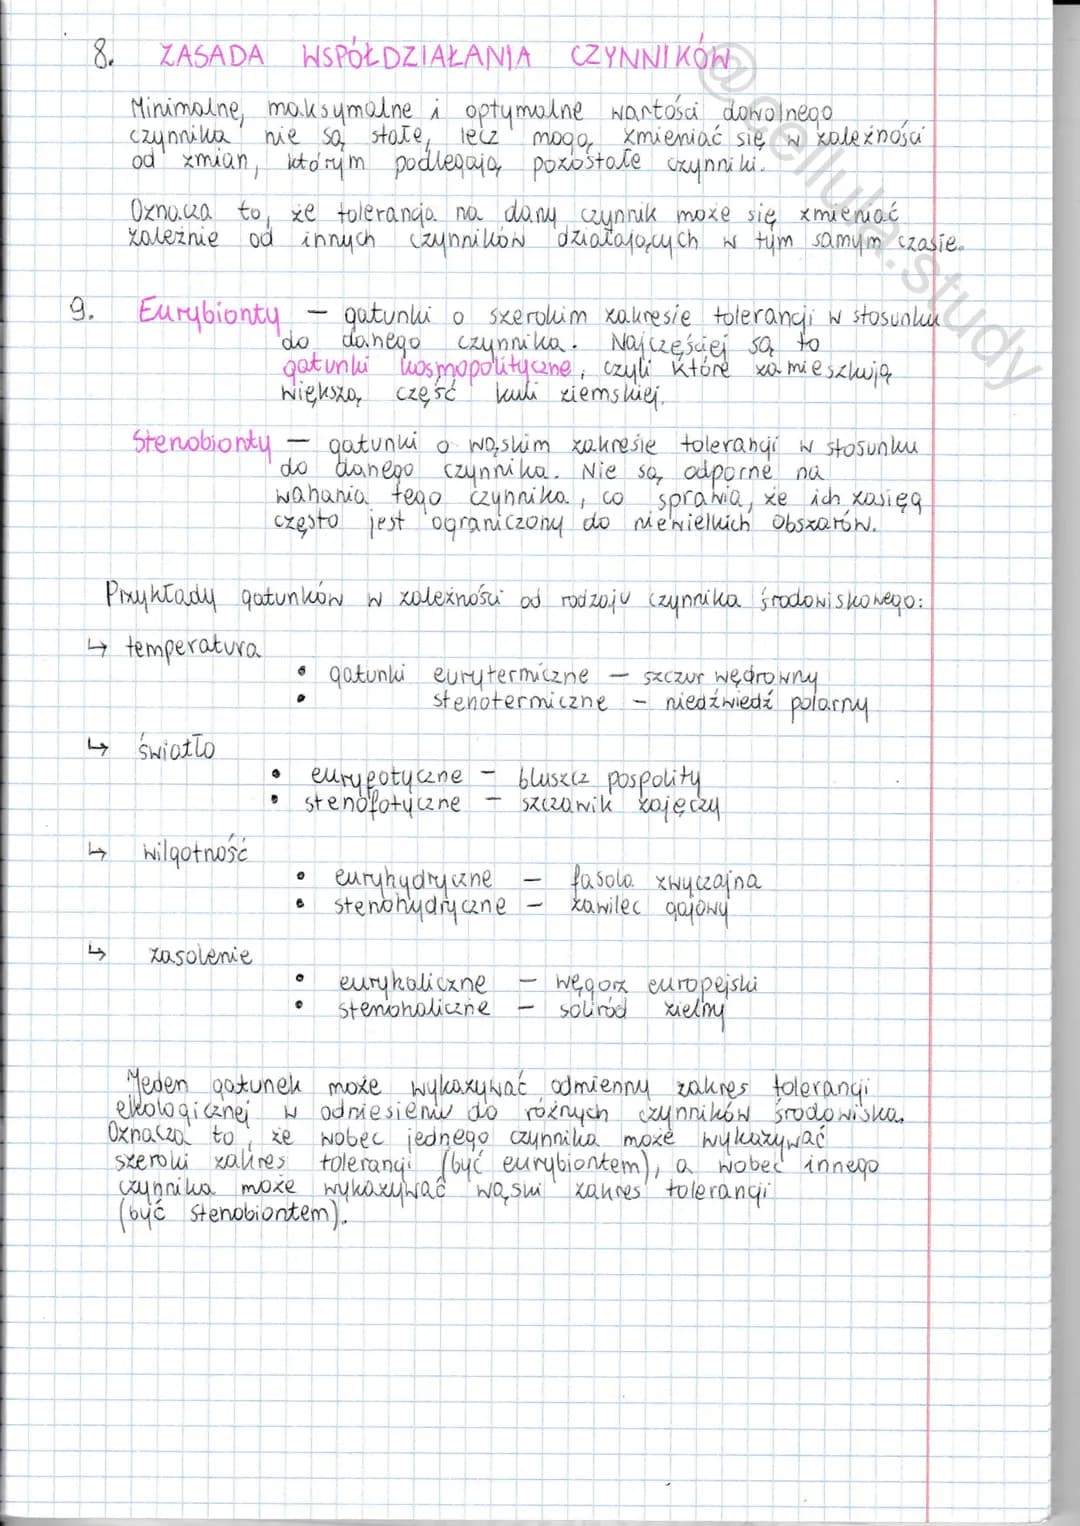 8. ZASADA WSPÓŁDZIAŁANIA CZYNNIKÓW
Minimalne, maksymalne i optymalne wartości dowolnego
czynnika nie są stałe, lecz mogą zmieniać się w zależności
od zmian, którym podlegają pozostałe czynniki.
Oznacza to, że tolerancja na dany czynnik może się zmieniać
zależnie od innych czynników działających w tym samym czasie.
9. Eurybionty — gatunki o szerokim zakresie tolerancji w stosunku
do danego czynnika. Najczęściej są to
gatunki kosmopolityczne, czyli które zamieszkują
większą część kuli ziemskiej.
Stenobionty — gatunki o wąskim zakresie tolerancji w stosunku
do danego czynnika. Nie są odporne na
wahania tego czynnika, co sprawia, że ich zasięg
często jest ograniczony do niewielkich obszarów.
Przykłady gatunków w zależności od rodzaju czynnika środowiskowego:
↳ temperatura
• gatunki eurytermiczne — szczur wędrowny
• stenotermiczne — niedźwiedź polarny
↳ światło
• euryfotyczne — bluszcz pospolity
• stenofotyczne — szczawik zajęczy
↳ wilgotność
• euryhydryczne — fasola zwyczajna
• stenohydryczne — zawilec gajowy
↳ zasolenie
• euryhaliczne — węgorz europejski
• stenohaliczne — soliród zielny
Jeden gatunek może wykazywać odmienny zakres tolerancji
ekologicznej w odniesieniu do różnych czynników środowiska.
Oznacza to, że wobec jednego czynnika może wykazywać
szeroki zakres tolerancji (być eurybiontem), a wobec innego
czynnika może wykazywać wąski zakres tolerancji
(być stenobiontem).
@cellula.study